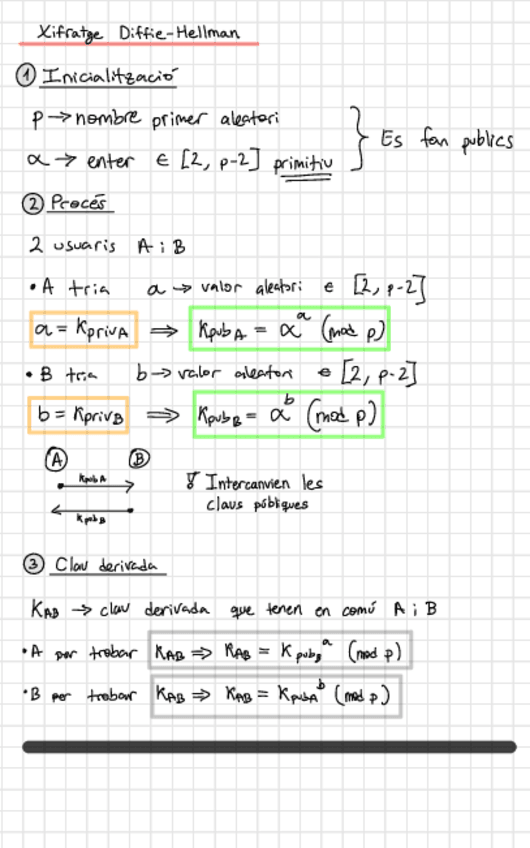 Xifratge Diffie-Hellman
① Inicialització
p → nombre primer aleatori
α → enter ∈ [2, p-2] primitiu } Es fan publics
② Procés
2 usuaris A i B
• A tria a → valor aleatori ∈ [2, p-2]
a = KprivA ⟹ KpubA = α^a (mod p)
• B tria b → valor aleatori ∈ [2, p-2]
b = KprivB ⟹ KpubB = α^b (mod p)
A B
KpubA
KpubB
Intercanvien les
claus públiques
③ Clau derivada
KAB → clau derivada que tenen en comú A i B
• A per trobar KAB ⇒ KAB = KpubB^a (mod p)
• B per trobar KAB ⇒ KAB = KpubA^b (mod p)